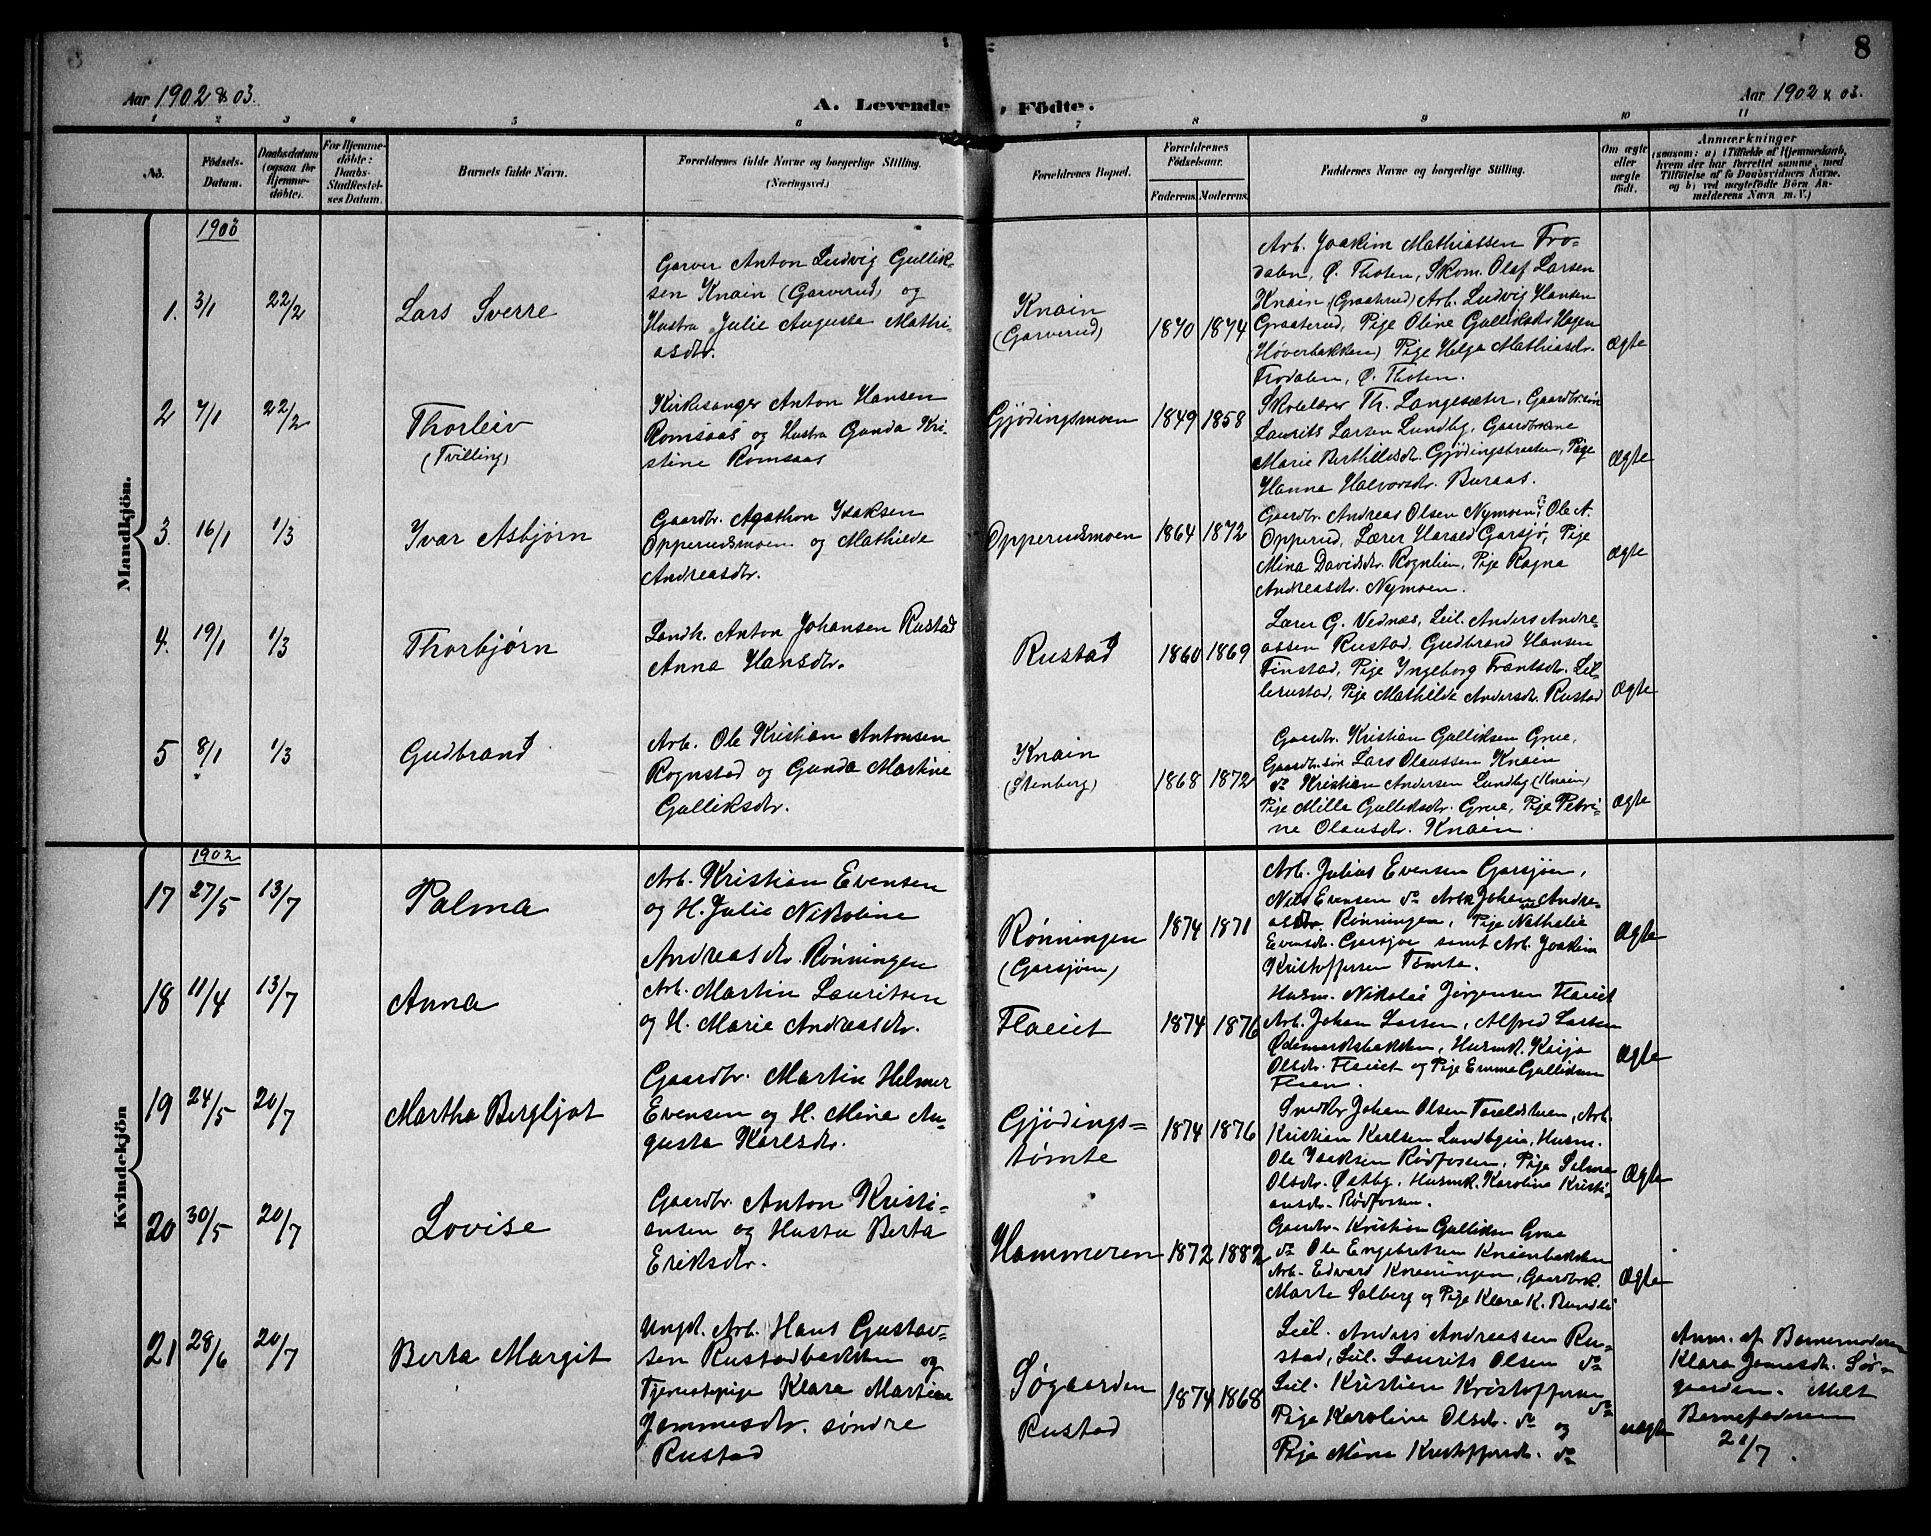 8
Aar 1902 & 03.
A. Levende Fødte.
Aar 1902 & 03.
1 2 3 4 5 6 7 8 9 10 11
No.
Fødsels-
Datum.
Daabsdatum
(ogsaa for
Hjemme-
døbte).
For Hjemme-
døbte:
Daabs-
Stadfæstel-
ses Datum.
Barnets fulde Navn.
Forældrenes fulde Navne og borgerlige Stilling.
(Næringsvei.)
Forældrenes Bopæl.
Forældrenes
Fødselsaar.
Faderens. Moderens.
Faddernes Navne og borgerlige Stilling.
Om ægte
eller
uægte
født.
Anmærkninger
(saasom: a) i Tilfælde af Hjemmedaab,
hvem der har forrettet samme, med
Tilføielse af to Daabsvidners Navne,
og b) ved uægtefødte Børn An-
melderens Navn m. V.)
Mandkjön.
1903
1. 3/1 22/2
Lars Sverre
Garver Anton Ludvig Gullik-
sen Knain (Garverud) og
Hustru Julie Augusta Mathi-
asdtr.
Knain
(Garverud)
1870 1874
Arb. Joakim Mathiassen Fro-
dalen, Ø. Thoten, Skom. Olaf Larsen
Knain (Graaterud) Arb. Ludvig Hansen
Graaterud, Pige Oline Galliksdtr Hagen
(Høverbakken) Pige Helga Mathiasdtr.
Frodalen, Ø. Thoten.
Ægte
2 7/1 22/2
Thorleiv
(Tvilling)
Kirkesanger Anton Hansen
Romsaas og Hustru Gunda Kri-
stine Romsaas
Gjødingsmoen
1849 1858
Skolelærer Th. Langesæter, Gaardbr.søn
Laurits Larsen Lundbg, Gaardbrkone
Marie Berthillesdtr. Gjødingstuten, Pige
Hanna Halvorsdtr. Buraas.
Ægte
3. 16/1 1/3
Ivar Asbjørn
Gaardbr. Agathon Isaksen
Opperudsmoen og Mathilde
Andreasdtr.
Opperudsmoen
1864 1872
Gaardbr. Andreas Olsen Nymoen, Ole A.
Opperud, Lærer Harald Garsjø, Pige
Mina Davidsdtr. Rognlien, Pige Ragna
Andreasdtr. Nymoen.
Ægte
4. 19/1 1/3
Thorbjørn
Landh. Anton Johansen Rustad
Anna Hansdtr.
Rustad
1860 1869
Lærer G. Vednæs, Leil. Anders Andre-
assen Rustad, Gudbrand Hansen
Finstad, Pige Ingeborg Frantsdtr. Lil-
lerustad, Pige Mathilde Andersdtr. Rustad
Ægte
5 8/1 1/3
Gudbrand
Arb. Ole Kristian Antonsen
Rognstad og Gunda Martine
Galliksdtr.
Knain
(Stenberg)
1868 1872
Gaardbr. Kristian Galliksen Grue,
Gaardbr.søn Lars Olaussen Knain
do Kristian Andersen Lundbg (Knain)
Pige Milla Galliksdtr. Grue, Pige Petri-
ne Olausdtr. Knain.
Ægte
Kvindekjön
1902
17 27/5 13/7
Palma
Arb. Kristian Evensen
og H. Julie Nikoline
Andreasdtr. Rønningen
Rønningen
(Garsjøen)
1874 1871
Arb. Julius Evensen Garsjøen,
Nils Evensen do Arbk Johanne Andre-
asdtr. Rønningen, Pige Nathalie
Evensdtr. Garsjøe samt Arb. Joakim
Kristoffersen Tømte.
Ægte
18 11/4 13/7
Anna
Arb. Martin Lauritsen
og H. Marie Andreasdtr.
Flaeiet
1874 1876
Husm. Nikolai Jørgensen Flaeiet
Arb. Johan Larsen, Alfred Larsen
Ødemarksbakken, Husmk. Kaija
Olsdtr. Flaeiet og Pige Emma Galliksen
Flaen.
Ægte
19 24/5 20/7
Martha Bergljot
Gaardbr. Martin Helmer
Evensen og H. Mina Au-
gusta Karlsdtr.
Gjødings-
tømte
1874 1876
Snedkr Johan Olsen, Arb.
Kristian Karlsen Lundbyeie, Husm.
Ole Isaksen Rødfossen, Pige Selma
Olsdtr. Østby, Husmk. Karoline Kristi-
ansdtr. Rødfossen.
Ægte
20 30/5 20/7
Lovise
Gaardbr. Anton Kristi-
ansen og Hustru Berta
Eriksdtr.
Hammeren
1872 1882
Gaardbr. Kristian Galliksen Grue
do Ole Engebretsen Knainbakken
Arb. Edvard, Gaardbrk.
Marte Solberg og Pige Klara K. Rundli
Ægte
21 28/6 20/7
Berta Margit
Ungk. Arb. Hans Gustav-
sen Rustadbakken og
Tjenestepige Klara Martine
Jammesdtr. søndre
Rustad
Søgaarden
Rustad
1874 1868
Leil. Anders Andreassen Ru-
stad, Leil. Laurits Olsen do
Leil. Kristian Kristoffersen do
Pige Karoline Olsdtr. do og
Pige Mina Kristoffersdtr. do
uægte
Anm. af Barnemoderen
Klara Jamesdtr. Sør-
gaarden. Melt
Barnefaderen
21/7.